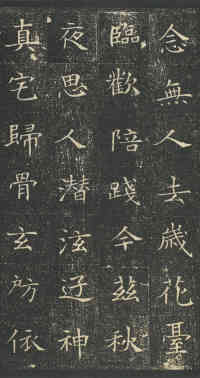 念無人去歳花臺
臨歡陪踐今茲秋
夜思人潜泫迋神
真宅歸骨玄房依